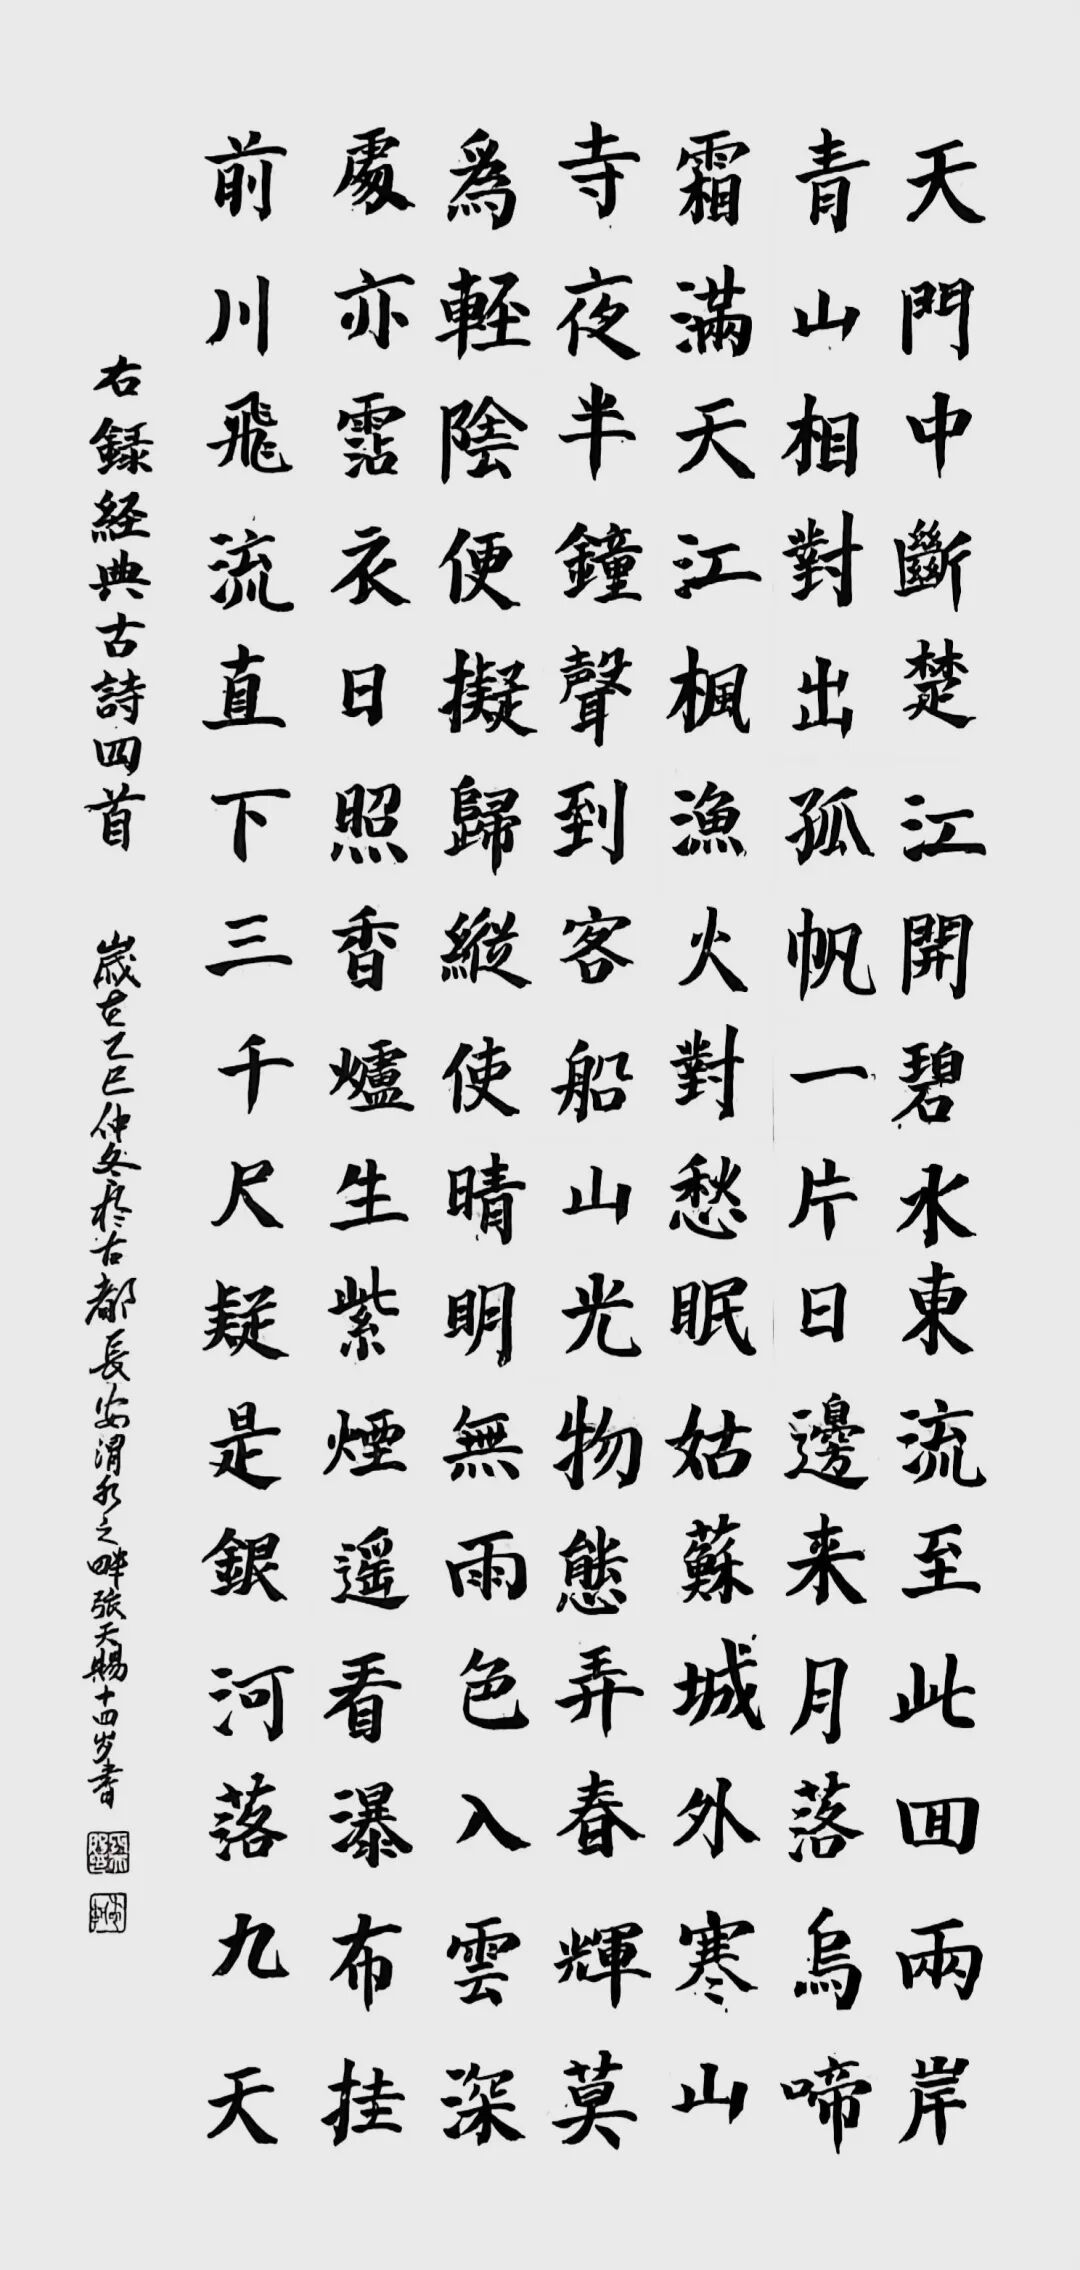 天門中斷楚江開碧水東流至此回兩岸
青山相對出孤帆一片日邊来月落烏啼
霜滿天江楓漁火對愁眠姑蘇城外寒山
寺夜半鐘聲到客船山光物態弄春輝莫
爲輕陰便擬歸縱使晴明無雨色入雲深
處亦霑衣日照香爐生紫煙遥看瀑布挂
前川飛流直下三千尺疑是銀河落九天
右録経典古詩四首 歲在乙巳仲冬於古都長安渭水之畔張天賜十四岁書